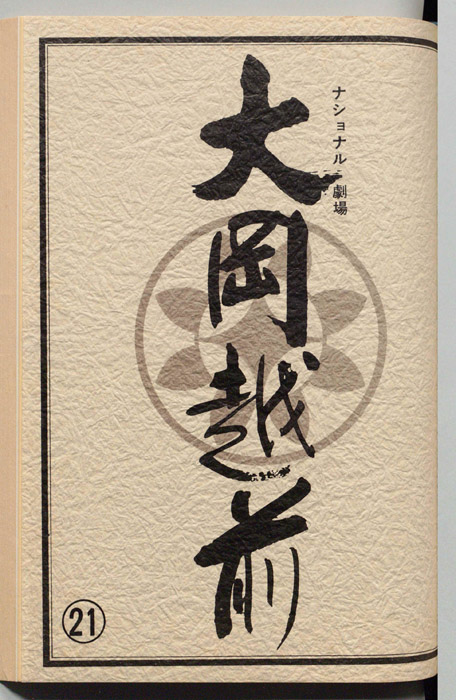 ナショナル劇場
大岡越前
㉑